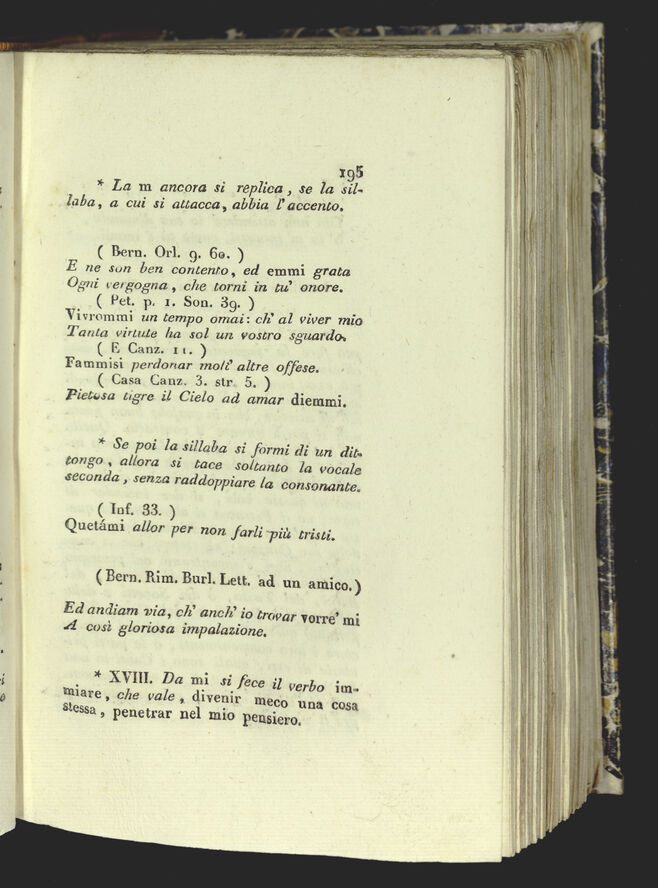 195
* La m ancora si replica, se la sil-
laba, a cui si attacca, abbia l'accento.
( Bern. Orl. 9. 60. )
E ne son ben contento, ed emmi grata
Ogni vergogna, che torni in tu' onore.
( Pet. p. 1. Son. 39. )
Vivrommi un tempo omai: ch' al viver mio
Tanta virtute ha sol un vostro sguardo.
( E Canz. 11. )
Fammisi perdonar molt' altre offese.
( Casa Canz. 3. str. 5. )
Pietosa tigre il Cielo ad amar diemmi.
* Se poi la sillaba si formi di un dit-
tongo, allora si tace soltanto la vocale
seconda, senza raddoppiare la consonante.
( Inf. 33. )
Quetámi allor per non farli più tristi.
( Bern. Rim. Burl. Lett. ad un amico.)
Ed andiam via, ch' anch' io trovar vorre' mi
A così gloriosa impalazione.
* XVIII. Da mi si fece il verbo im-
miare, che vale, divenir meco una cosa
stessa, penetrar nel mio pensiero.